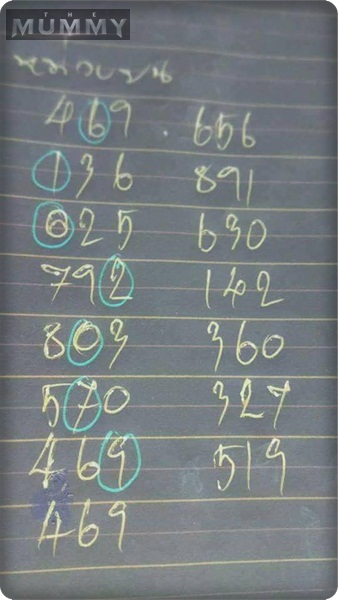 THE
MUMMY
469 . 656
136 891
625 630
792 142
803 360
570 327
469 519
469